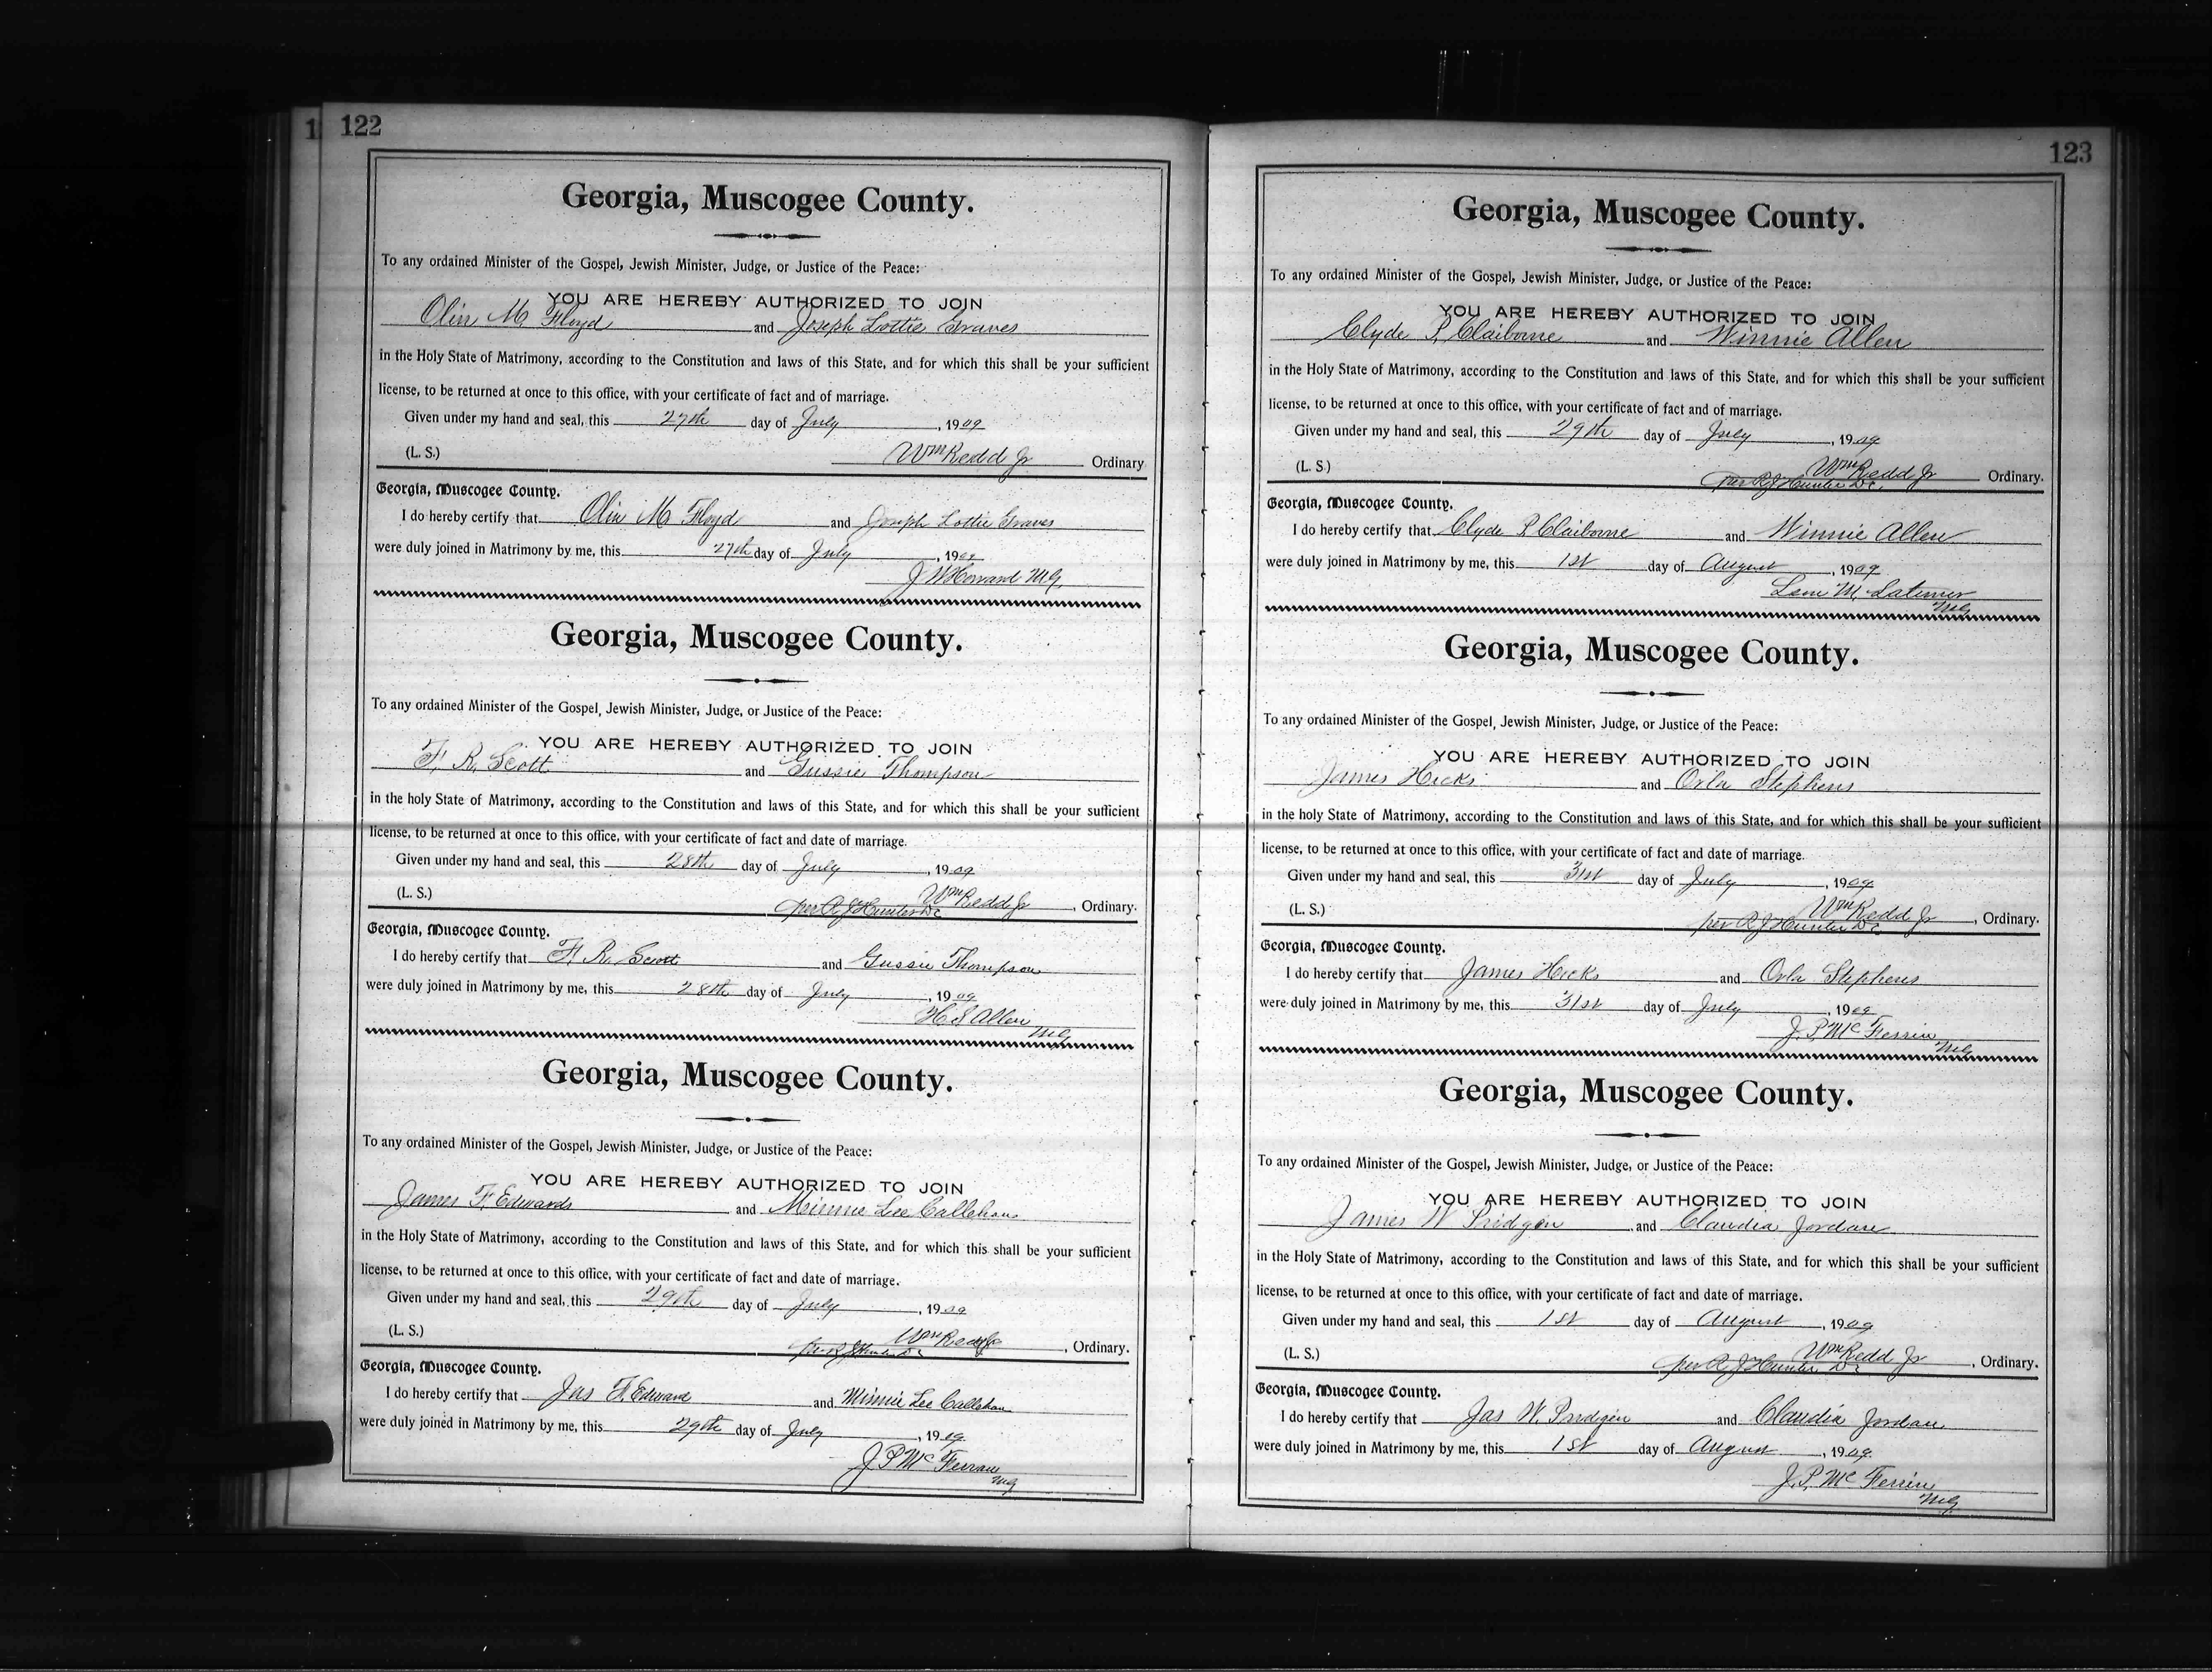 1 122
Georgia, Muscogee County.
To any ordained Minister of the Gospel, Jewish Minister, Judge, or Justice of the Peace:
YOU ARE HEREBY AUTHORIZED TO JOIN
Olin M. Floyd and Joseph Lottie Graves
in the Holy State of Matrimony, according to the Constitution and laws of this State, and for which this shall be your sufficient
license, to be returned at once to this office, with your certificate of fact and of marriage.
Given under my hand and seal, this 27th day of July, 1909
(L. S.) Wm Redd Jr Ordinary
Georgia, Muscogee County.
I do hereby certify that Olin M Floyd and Joseph Lottie Graves
were duly joined in Matrimony by me, this 27th day of July, 1909
J W Howard MG
Georgia, Muscogee County.
To any ordained Minister of the Gospel, Jewish Minister, Judge, or Justice of the Peace:
YOU ARE HEREBY AUTHORIZED TO JOIN
F. R. Scott and Gussie Thompson
in the holy State of Matrimony, according to the Constitution and laws of this State, and for which this shall be your sufficient
license, to be returned at once to this office, with your certificate of fact and date of marriage.
Given under my hand and seal, this 28th day of July, 1909
(L. S.) Wm Redd Jr, Ordinary.
per R J Hunter DC
Georgia, Muscogee County.
I do hereby certify that F. R. Scott and Gussie Thompson
were duly joined in Matrimony by me, this 28th day of July, 1909
H S Allen
MG
Georgia, Muscogee County.
To any ordained Minister of the Gospel, Jewish Minister, Judge, or Justice of the Peace:
YOU ARE HEREBY AUTHORIZED TO JOIN
James F. Edwards and Minnie Lee Callehan
in the Holy State of Matrimony, according to the Constitution and laws of this State, and for which this shall be your sufficient
license, to be returned at once to this office, with your certificate of fact and date of marriage.
Given under my hand and seal, this 29th day of July, 1909
(L. S.) Wm Redd Jr, Ordinary.
per R J Hunter DC
Georgia, Muscogee County.
I do hereby certify that Jas F. Edward and Minnie Lee Callehan
were duly joined in Matrimony by me, this 29th day of July, 1909
J P McFerran
MG
123
Georgia, Muscogee County.
To any ordained Minister of the Gospel, Jewish Minister, Judge, or Justice of the Peace:
YOU ARE HEREBY AUTHORIZED TO JOIN
Clyde P. Claiborne and Winnie Allen
in the Holy State of Matrimony, according to the Constitution and laws of this State, and for which this shall be your sufficient
license, to be returned at once to this office, with your certificate of fact and of marriage.
Given under my hand and seal, this 29th day of July, 1909
(L. S.) Wm Redd Jr Ordinary.
per R J Hunter DC
Georgia, Muscogee County.
I do hereby certify that Clyde P Claiborne and Winnie Allen
were duly joined in Matrimony by me, this 1st day of August, 1909
M. Latimer
MG
Georgia, Muscogee County.
To any ordained Minister of the Gospel, Jewish Minister, Judge, or Justice of the Peace:
YOU ARE HEREBY AUTHORIZED TO JOIN
James Hicks and Orla Stephens
in the holy State of Matrimony, according to the Constitution and laws of this State, and for which this shall be your sufficient
license, to be returned at once to this office, with your certificate of fact and date of marriage.
Given under my hand and seal, this 31st day of July, 1909
(L. S.) Wm Redd Jr, Ordinary.
per R J Hunter DC
Georgia, Muscogee County.
I do hereby certify that James Hicks and Orla Stephens
were duly joined in Matrimony by me, this 31st day of July, 1909
J. P. McFerrin
MG
Georgia, Muscogee County.
To any ordained Minister of the Gospel, Jewish Minister, Judge, or Justice of the Peace:
YOU ARE HEREBY AUTHORIZED TO JOIN
James W Pridgen and Claudia Jordan
in the Holy State of Matrimony, according to the Constitution and laws of this State, and for which this shall be your sufficient
license, to be returned at once to this office, with your certificate of fact and date of marriage.
Given under my hand and seal, this 1st day of August, 1909
(L. S.) Wm Redd Jr, Ordinary.
per R J Hunter DC
Georgia, Muscogee County.
I do hereby certify that Jas W. Pridgen and Claudia Jordan
were duly joined in Matrimony by me, this 1st day of August, 1909
J. P. McFerrin
MG